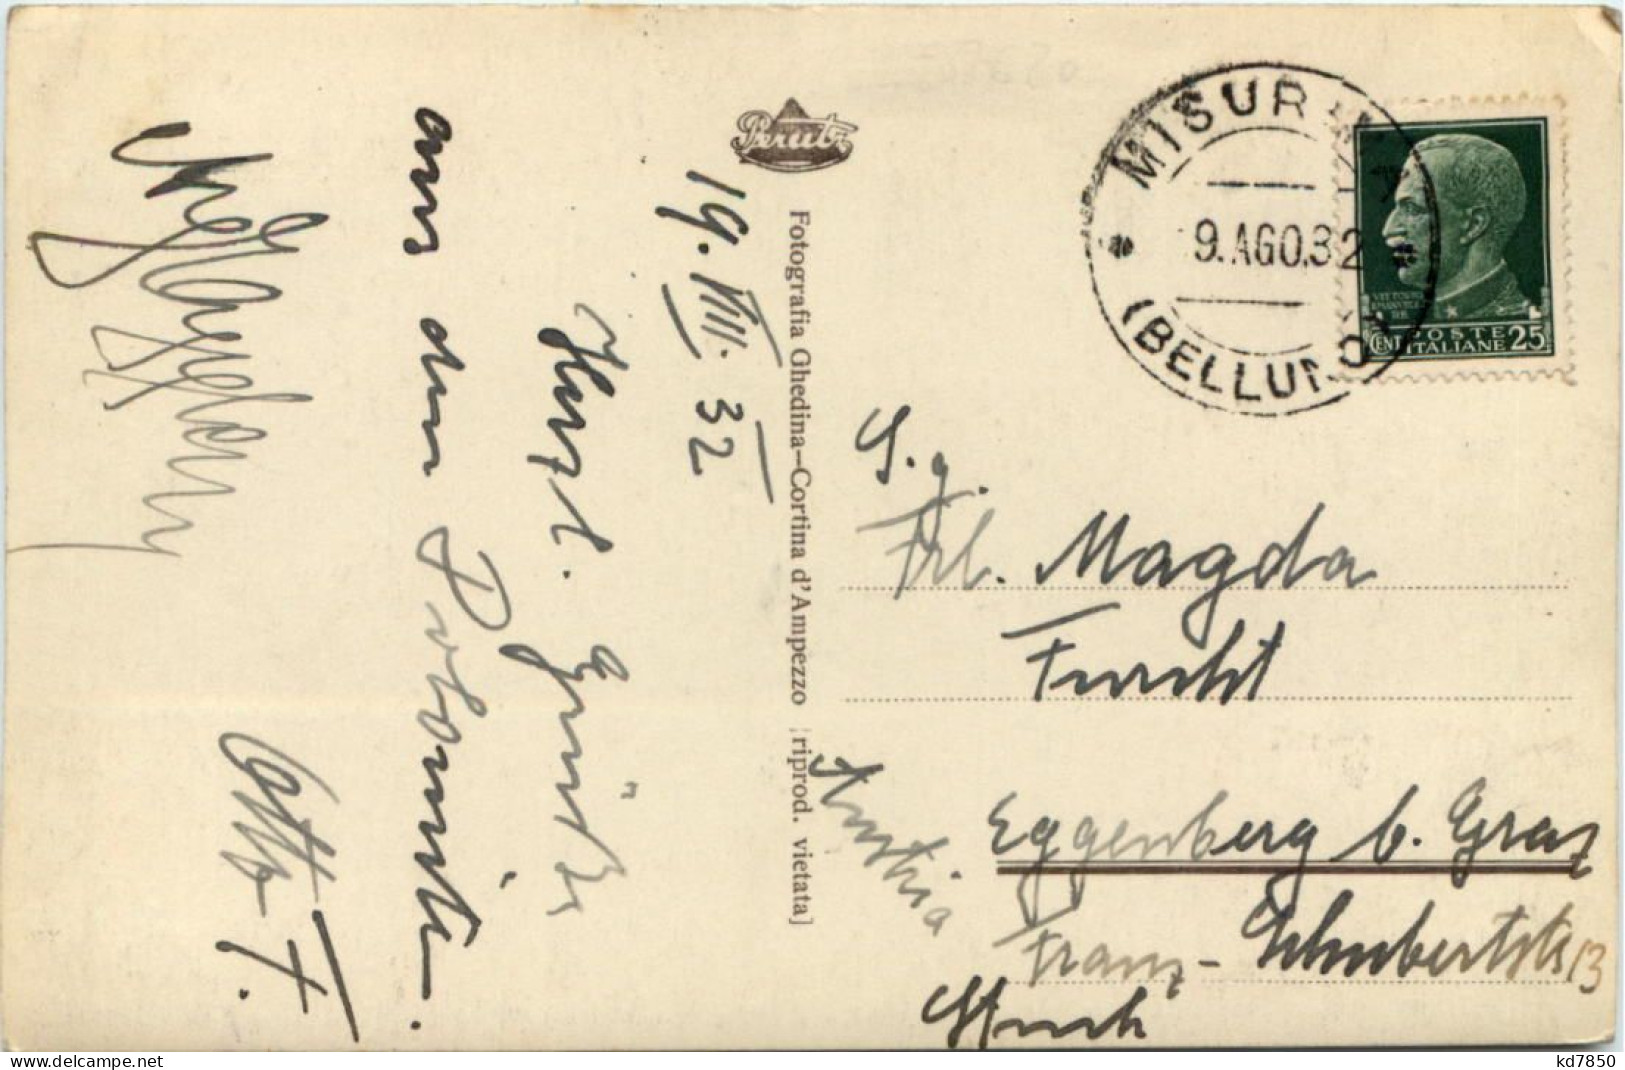 19. VIII. 32
Herzl. Grüße
aus den Dolomiten.
Otto F.
Perutz
Fotografia Ghedina—Cortina d'Ampezzo [riprod. vietata]
MISURINA
9.AGO.32
(BELLUNO)
VITTORIO
EMANUELE
RE
POSTE
ITALIANE
CENT 25
S. g.
Frl. Magda
Furcht
Austria
Eggenberg b. Graz
Franz-Schubertstr 13
www.delcampe.net
kd7850